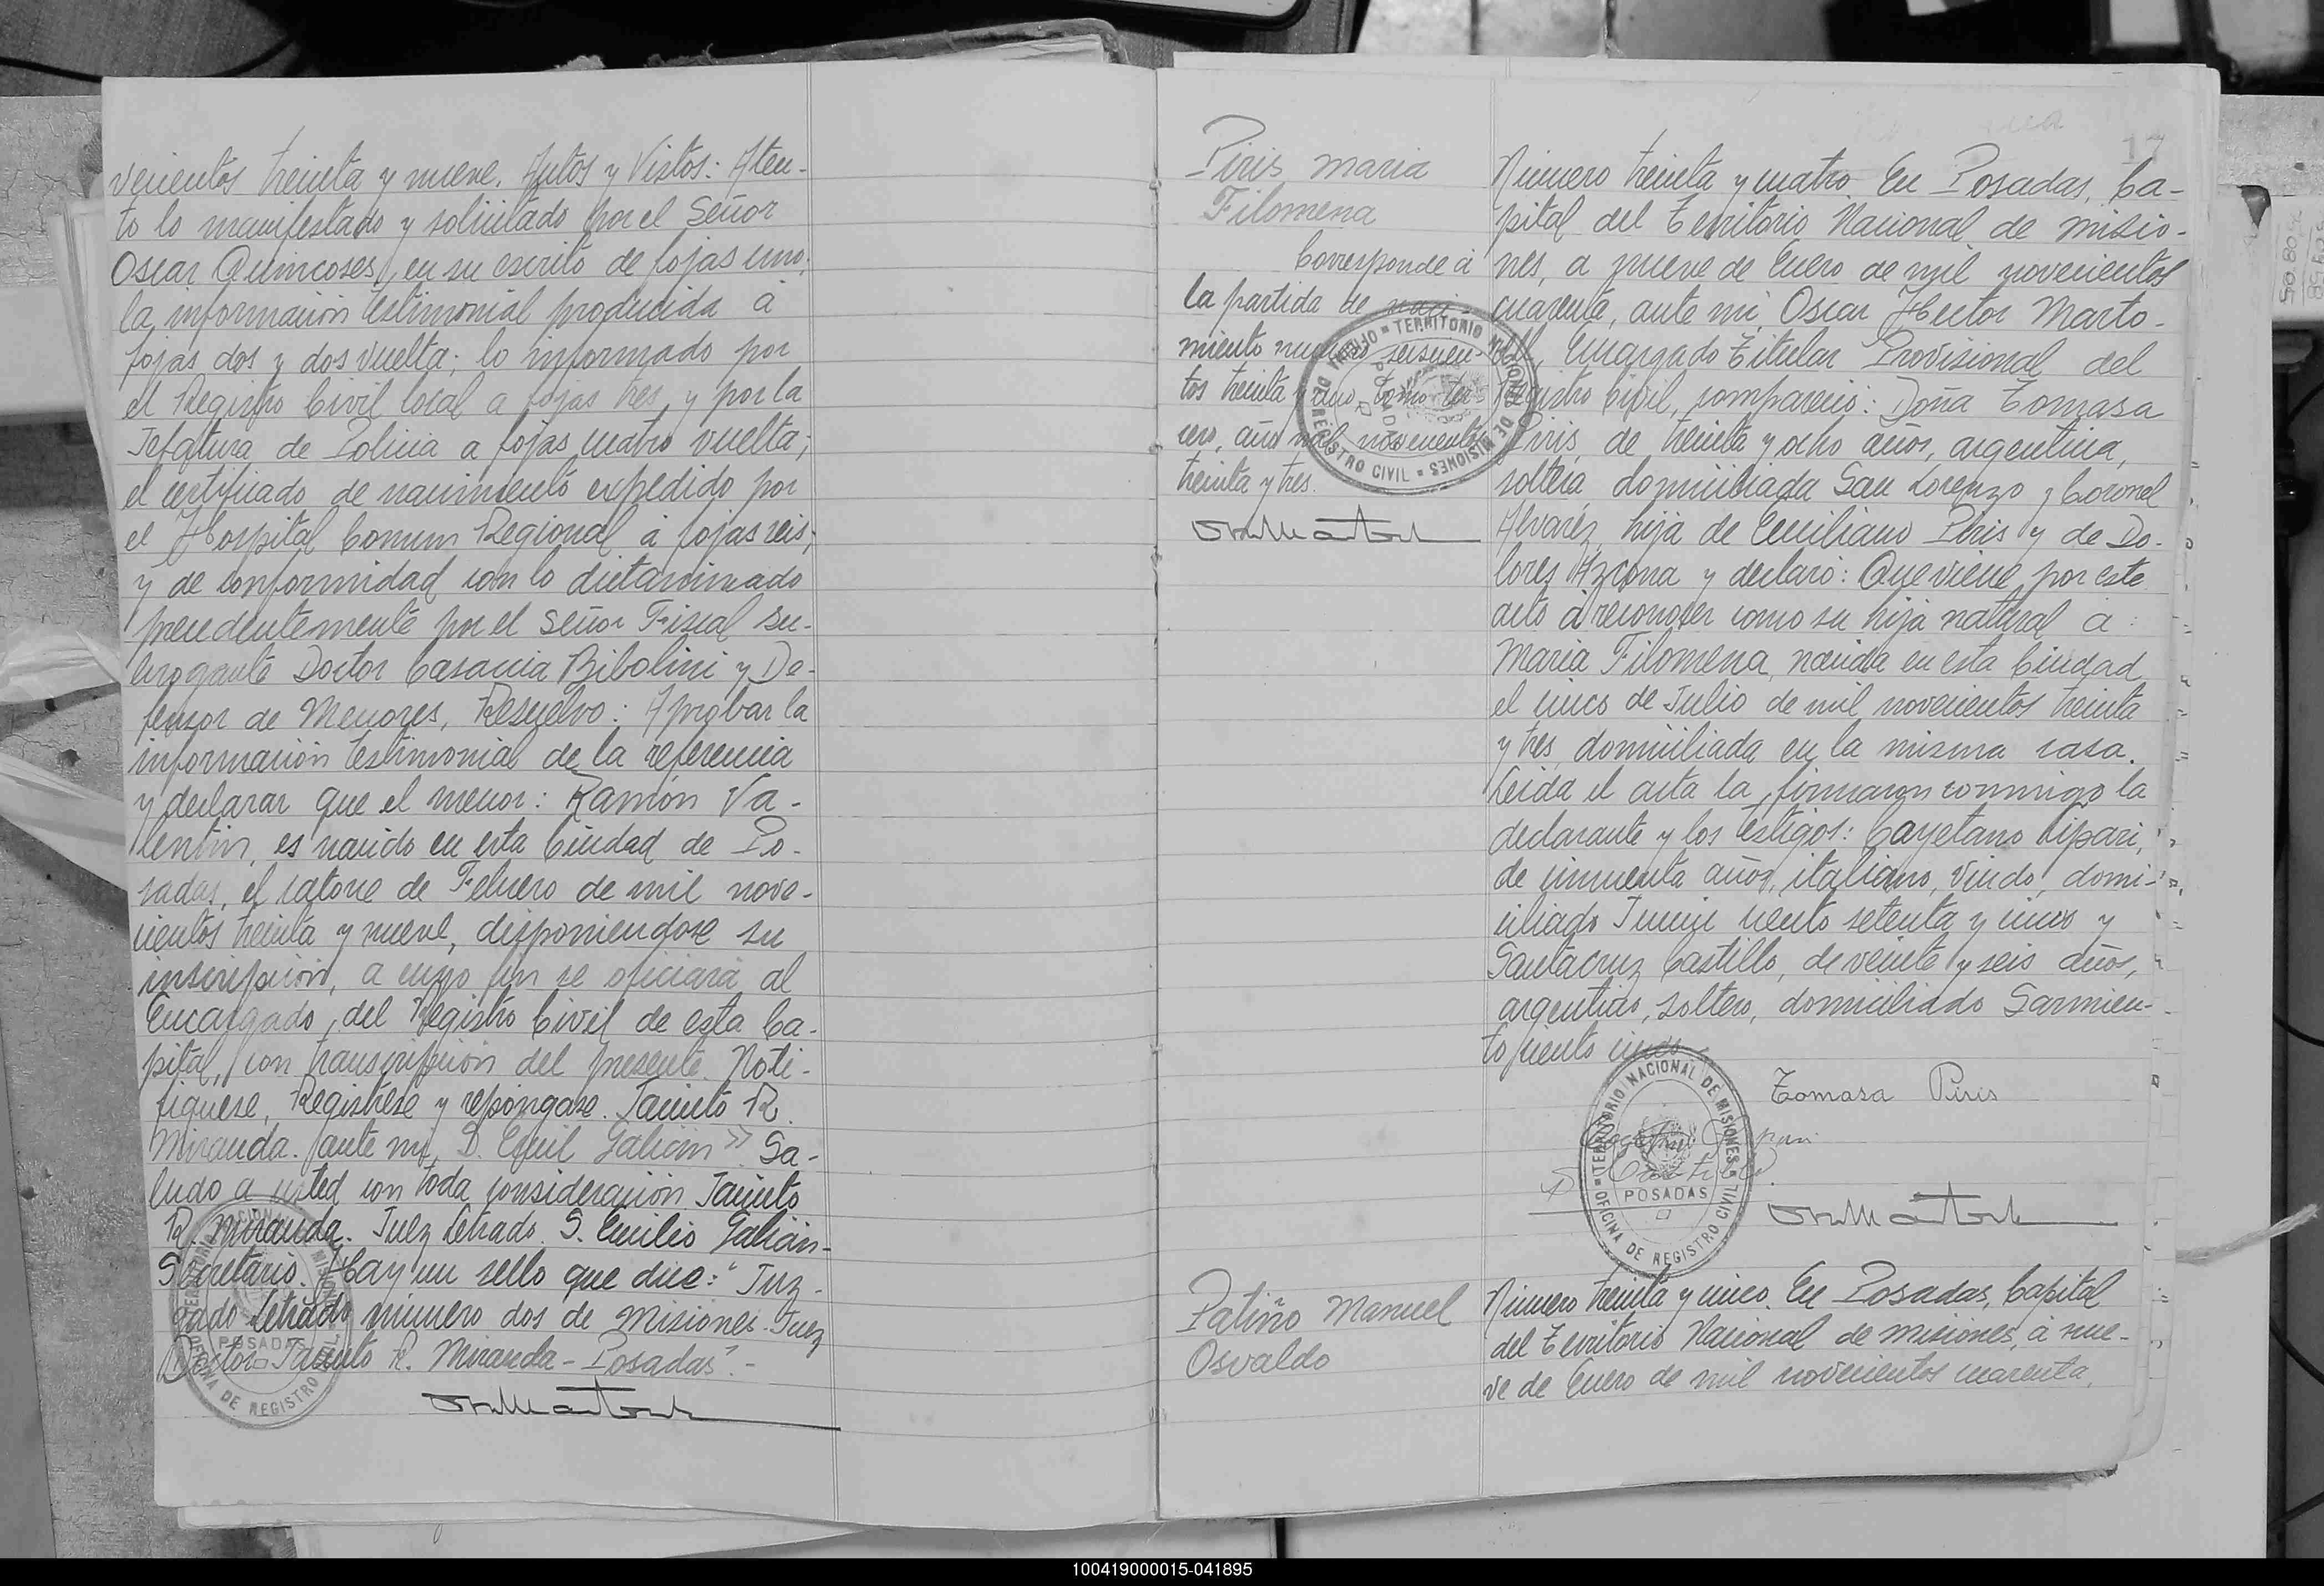 vecientos treinta y nueve. Autos y Vistos: Aten-
to lo manifestado y solicitado por el Señor
Oscar Quincoses, en su escrito de fojas uno;
la información testimonial producida á
fojas dos y dos vuelta; lo informado por
el Registro Civil local a fojas tres y por la
Jefatura de Policia a fojas cuatro vuelta;
el certificado de nacimiento expedido por
el Hospital Comun Regional á fojas seis;
y de conformidad con lo dictaminado
precedentemente por el Señor Fiscal su-
brogante Doctor Casaccia Bibolini y De-
fensor de Menores, Resuelvo: Aprobar la
información testimonial de la referencia
y declarar que el menor: Ramón Va-
lentin, es nacido en esta Ciudad de Po-
sadas, el catorce de Febrero de mil nove-
cientos treinta y nueve, disponiendose su
inscripción, a cuyo fin se oficiará al
Encargado del Registro Civil de esta Ca-
pital, con transcripción del presente. Noti-
fiquese, Registrese y repóngase. Jacinto R.
Miranda. ante mi, D. Emil Galian" Sa-
ludo a usted con toda consideración Jacinto
R. Miranda. Juez Letrado. S. Emilio Galián-
Secretario. Hay un sello que dice: "Juz-
gado Letrado número dos de Misiones. Juez
Doctor Jacinto R. Miranda - Posadas".-
TERRITORIO NACIONAL DE MISIONES
POSADAS
OFICINA DE REGISTRO CIVIL
17
Piris Maria
Filomena
Corresponde á
la partida de naci-
miento número seiscien-
tos treinta y uno, tomo ter
cero, año mil novecientos
treinta y tres.
TERRITORIO NACIONAL DE MISIONES
OFICINA DE REGISTRO CIVIL
POSADAS
Número treinta y cuatro. En Posadas, Ca-
pital del Territorio Nacional de Misio-
nes, a nueve de Enero de mil novecientos
cuarenta, ante mi, Oscar Hector Marto-
rell, Encargado Titular Provisional del
Registro Civil, compareció: Doña Tomasa
Piris, de treinta y ocho años, argentina,
soltera, domiciliada San Lorenzo y Coronel
Alvarez, hija de Emiliano Piris y de Do-
lores Azcona y declaró: Que viene por este
acto á reconocer como su hija natural a:
Maria Filomena, nacida en esta Ciudad
el cinco de Julio de mil novecientos treinta
y tres, domiciliada en la misma casa.
Leida el acta la firmaron conmigo la
declarante y los testigos: Cayetano Lipari,
de cincuenta años, italiano, viudo, domi-
ciliado Junin ciento setenta y cinco y
Santacruz Castillo, de veinte y seis años,
argentino, soltero, domiciliado Sarmien-
to ciento cinco.-
Tomasa Piris
TERRITORIO NACIONAL DE MISIONES
POSADAS
OFICINA DE REGISTRO CIVIL
Patiño Manuel
Osvaldo
Número treinta y cinco. En Posadas, Capital
del Territorio Nacional de Misiones, á nue-
ve de Enero de mil novecientos cuarenta,
100419000015-041895